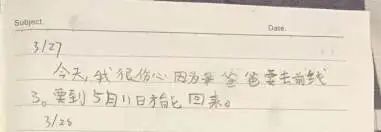 Subject.
Date.
3/27
今天,我很伤心因为我爸爸要去前线
了。要到5月11日才能回来。
3/28